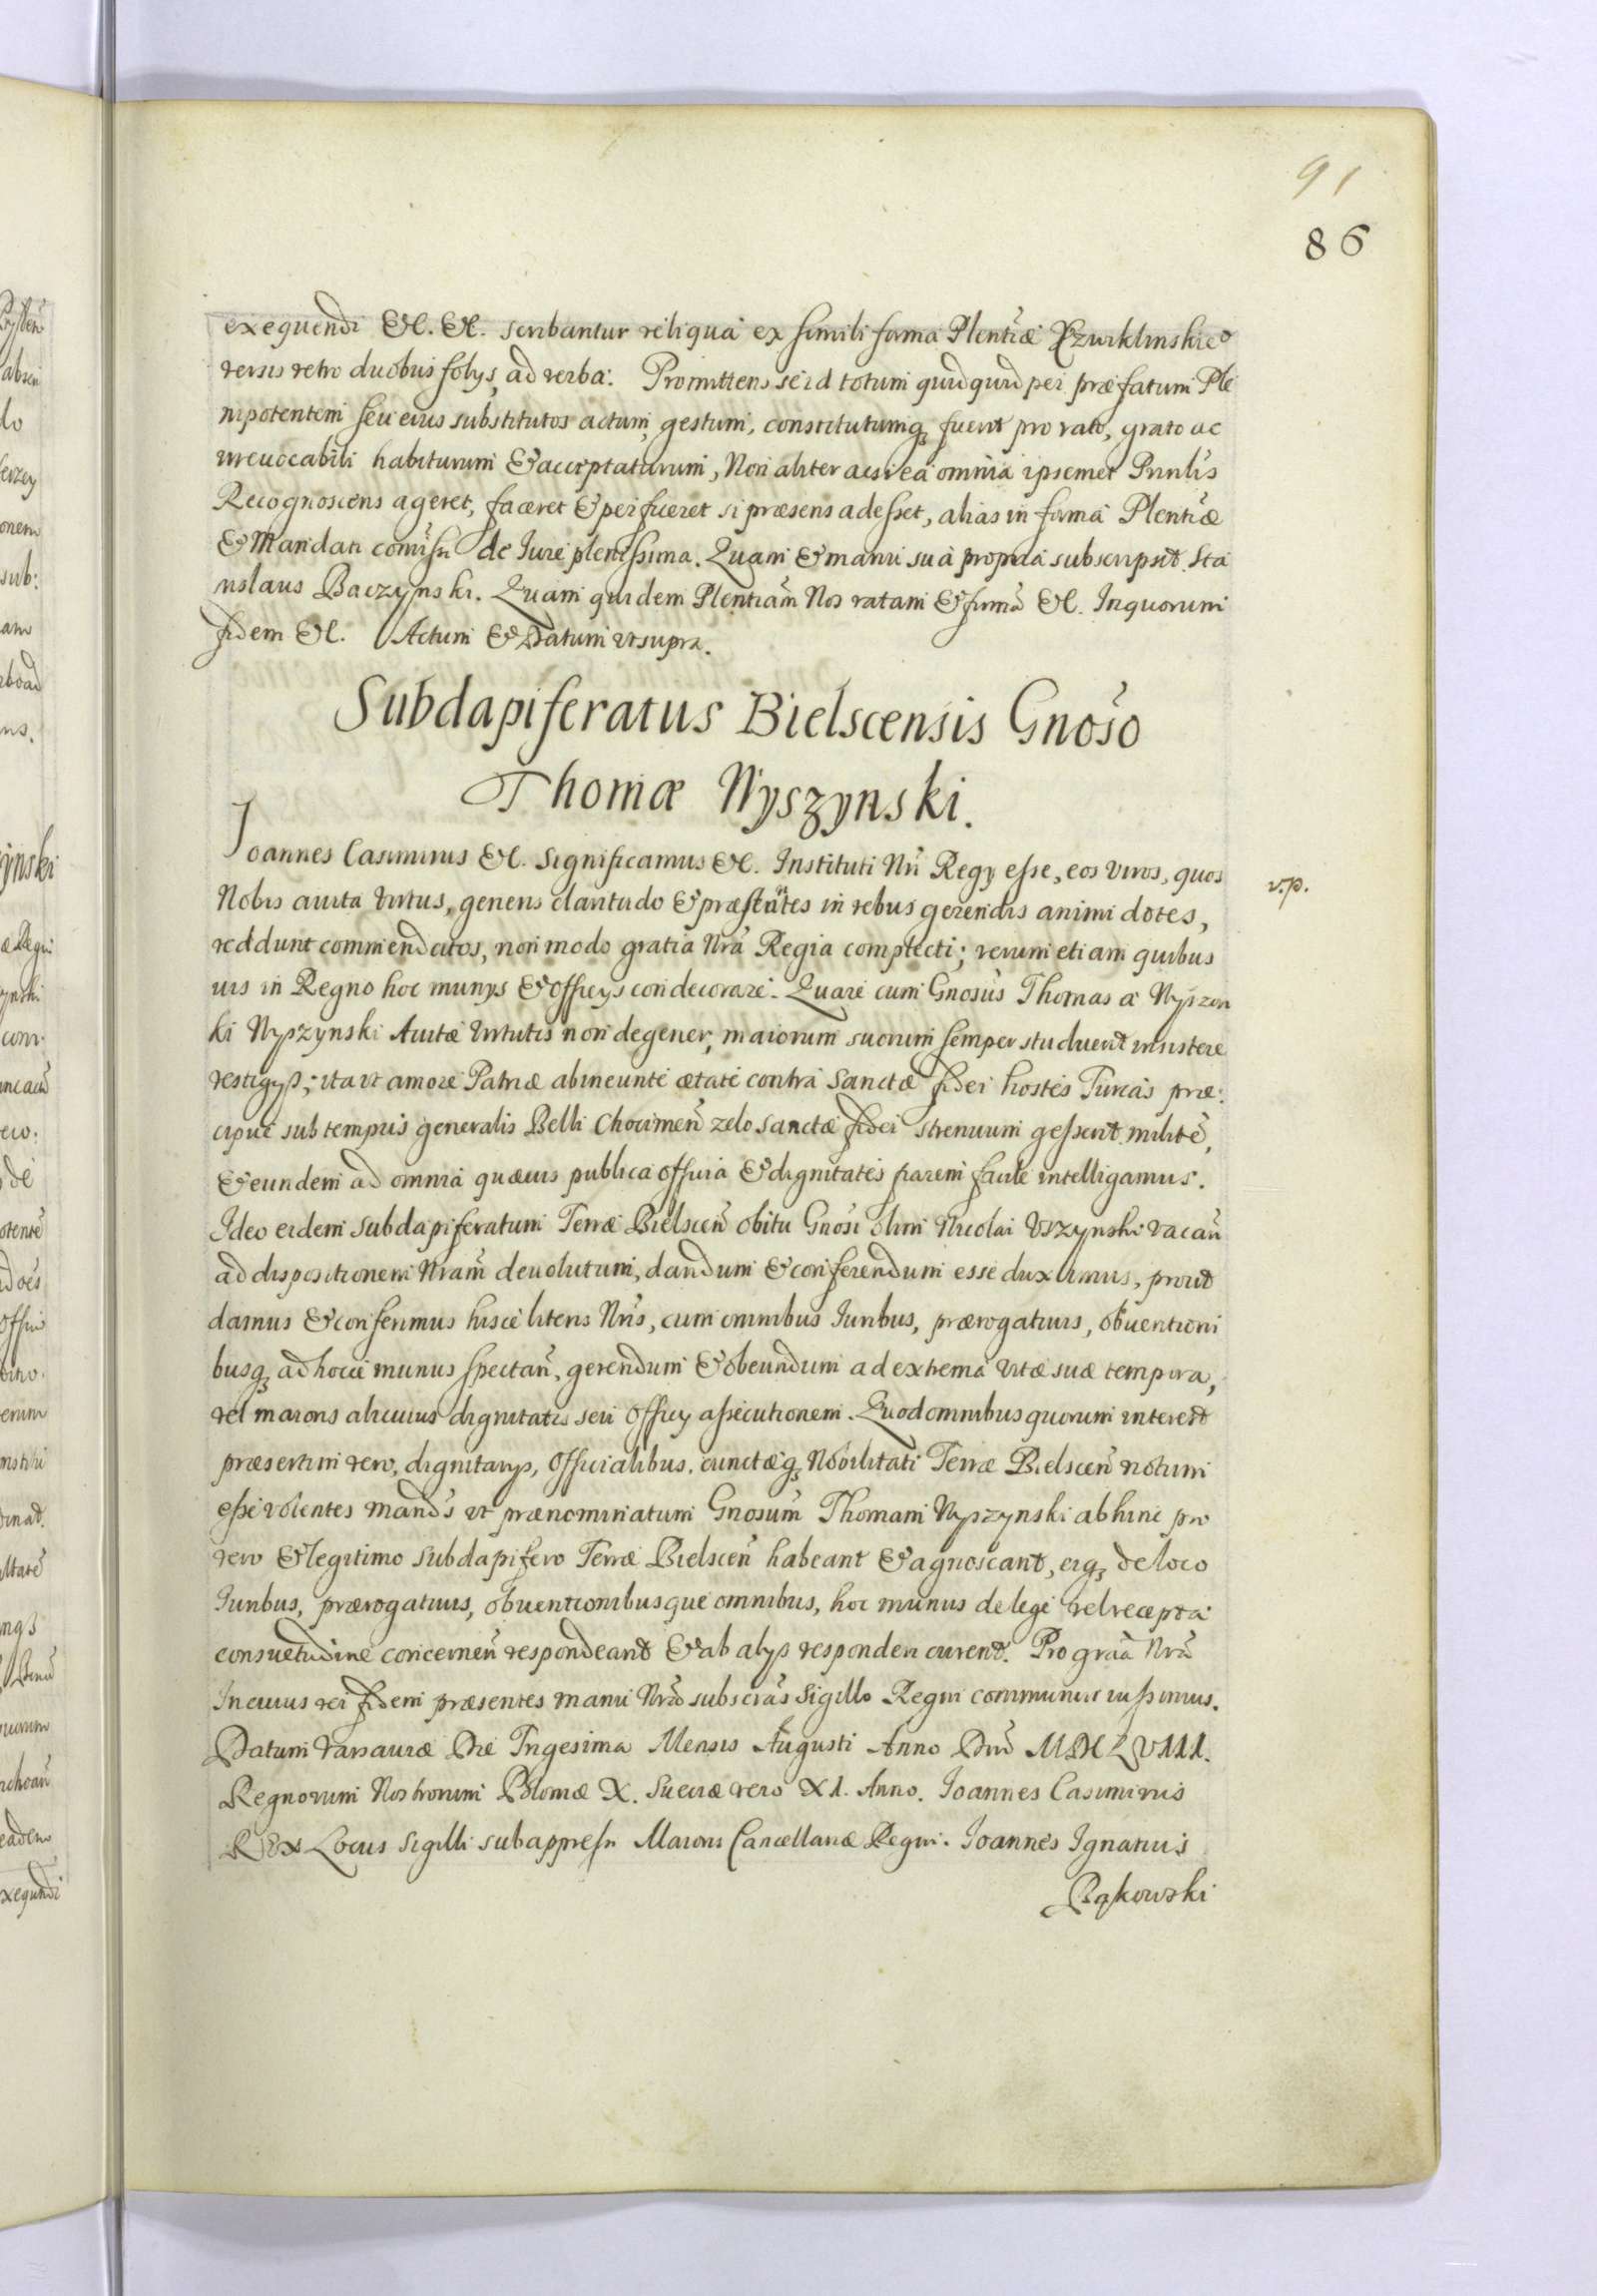 91
86
exequendi &c. &c. scribantur reliqua ex simili forma Plentiæ
versis retro duobus folys, ad verba: Promittens se id totum quidquid per præfatum Ple
nipotentem seu eius substitutos actum, gestum, constitutumq fuerit pro rato, grato ac
irreuocabili habiturum & acceptaturum, Non aliter acsi ea omnia ipsemet Prinlis
Recognoscens ageret, faceret & perficeret si præsens adesset, alias in forma Plentiæ
& Mandati comissi de Iure plenissima. Quam & manu sua propria subscripsit. Sta
nislaus Baczynski. Quam quidem Plentiam Nos ratam & firmã &c. In quorum
fidem &c. Actum & Datum vt supra.
Subdapiferatus Bielscensis Gnoso
Thomæ Wyszynski.
Ioannes Casimirus &c. Significamus &c. Instituti Nri Regy esse, eos viros, quos
v.p.
Nobis auita virtus, generis claritudo & præstantes in rebus gerendis animi dotes,
reddunt commendatos, non modo gratia Nra Regia complecti; verum etiam quibus
uis in Regno hoc munys & officys condecorare. Quare cum Gnosus Thomas a Wyszon
ki Wyszynski Auitæ virtutis non degener, maiorum suorum semper studuerit insistere
vestigys; ita vt amore Patriæ ab ineunte ætate contra Sanctæ fidei hostes Turcas præ:
cipue sub tempus generalis Belli Chocimeñ zelo sanctæ fidei strenuum gesserit militẽ,
& eundem ad omnia quæuis publica officia & dignitates parem facile intelligamus.
Ideo eidem subdapiferatum Terræ Bielsceñ obitu Gnosi olim Nicolai Vszynski vacañ
ad dispositionem Nram deuolutum, dandum & conferendum esse duximus, prout
damus & conferimus hisce literis Nris, cum omnibus Iuribus, prærogatiuis, obuentioni
busq ad hocce munus spectañ, gerendum & obeundum ad extrema vitæ suæ tempora,
vel maioris alicuius dignitatis seu officy assecutionem. Quod omnibus quorum interest
præsertim vero, dignitarys, Officialibus, cunctæq Nobilitati Terræ Bielsceñ notum
esse volentes mands vt prænominatum Gnosum Thomam Wyszynski abhinc pro
vero & legitimo Subdapifero Terræ Bielsceñ habeant & agnoscant, eiq de loco
Iuribus, prærogatiuis, obuentionibusque omnibus, hoc munus de lege vel recepta
consuetudine concerneñ respondeant & ab alys responderi curent. Pro graa Nra
In cuius rei fidem præsentes manu Nra subscras Sigillo Regni communiri iussimus.
Datum Varsauiæ Die Trigesima Mensis Augusti Anno Dni MDCLVIII.
Regnorum Nostrorum Poloniæ X. Sueciæ vero XI. Anno. Ioannes Casimirus
REx Locus Sigilli subappressi Maioris Cancellariæ Regni. Ioannes Ignatius
Bąkowski